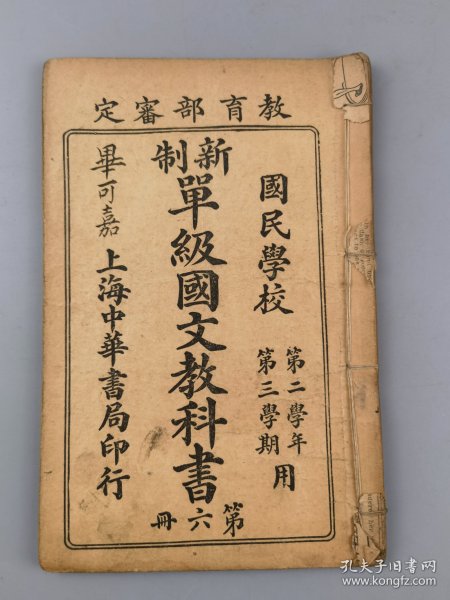 教育部審定
國民學校
第二學年
第三學期
用
新制
單級國文教科書
第六冊
畢可嘉
上海中華書局印行
孔夫子旧书网
www.kongfz.com